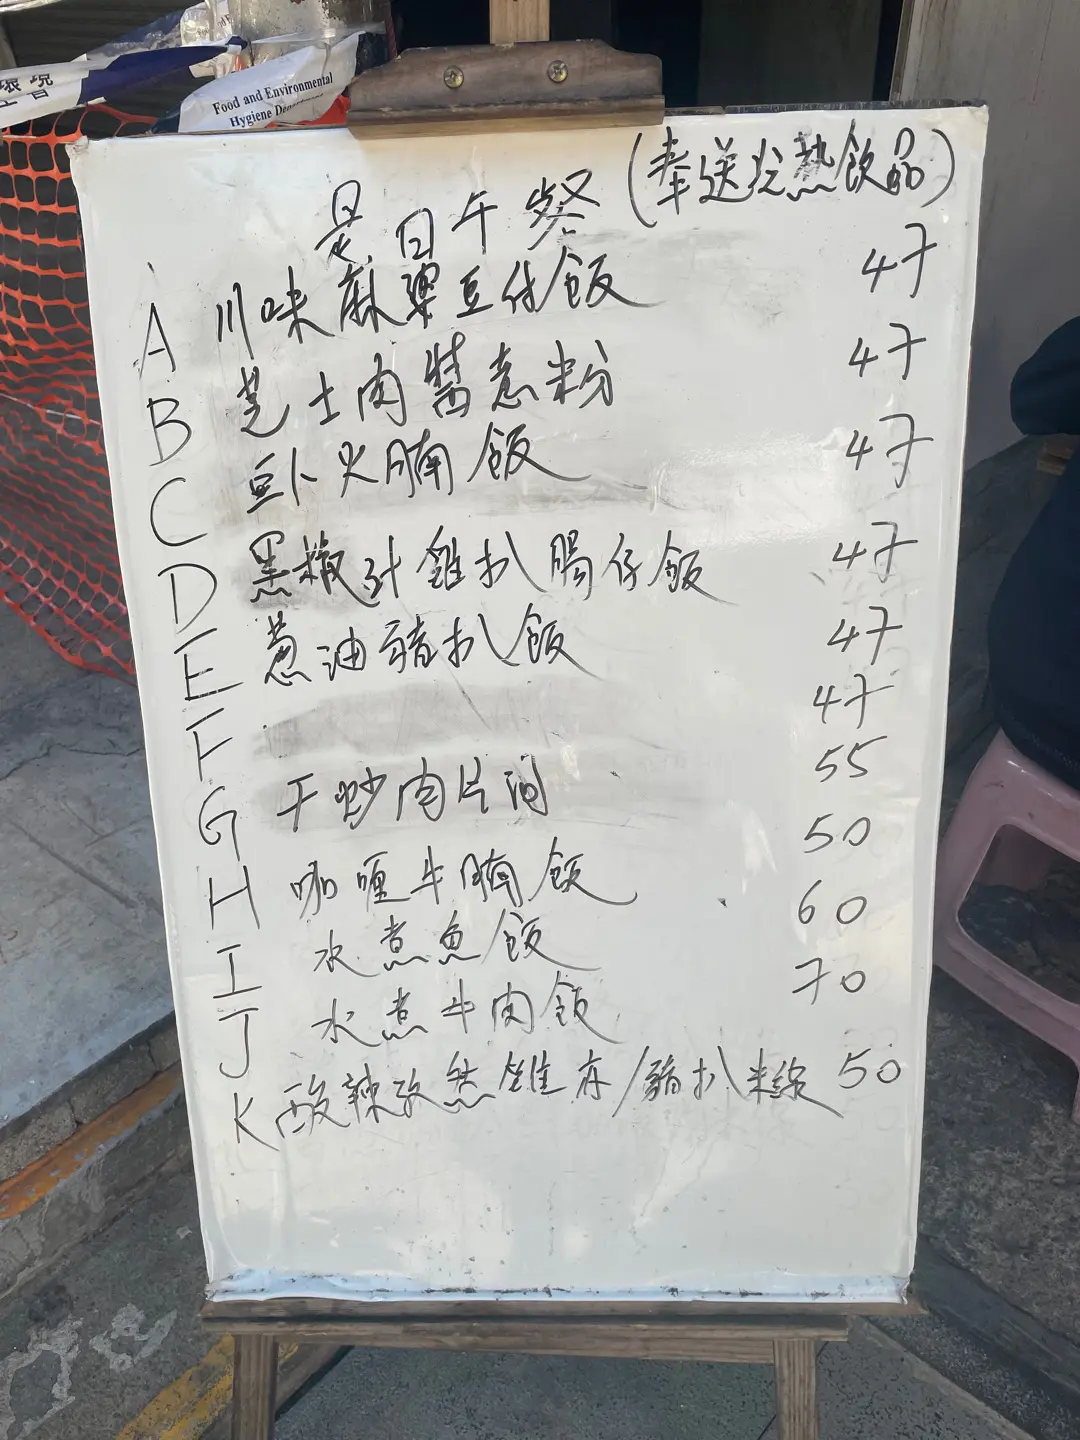 Food and Environmental
Hygiene
是日午餐 (奉送热飲品)
A 川味麻婆豆付飯 47
B 芝士肉醬意粉 47
C 豆卜火腩飯 47
D 黑椒汁雞扒腸仔飯 47
E 葱油豬扒飯 47
F 47
G 干炒肉片河 55
H 咖喱牛腩飯 50
I 水煮魚飯 60
J 水煮牛肉飯 70
K 酸辣孜然雞亦/豬扒米線 50